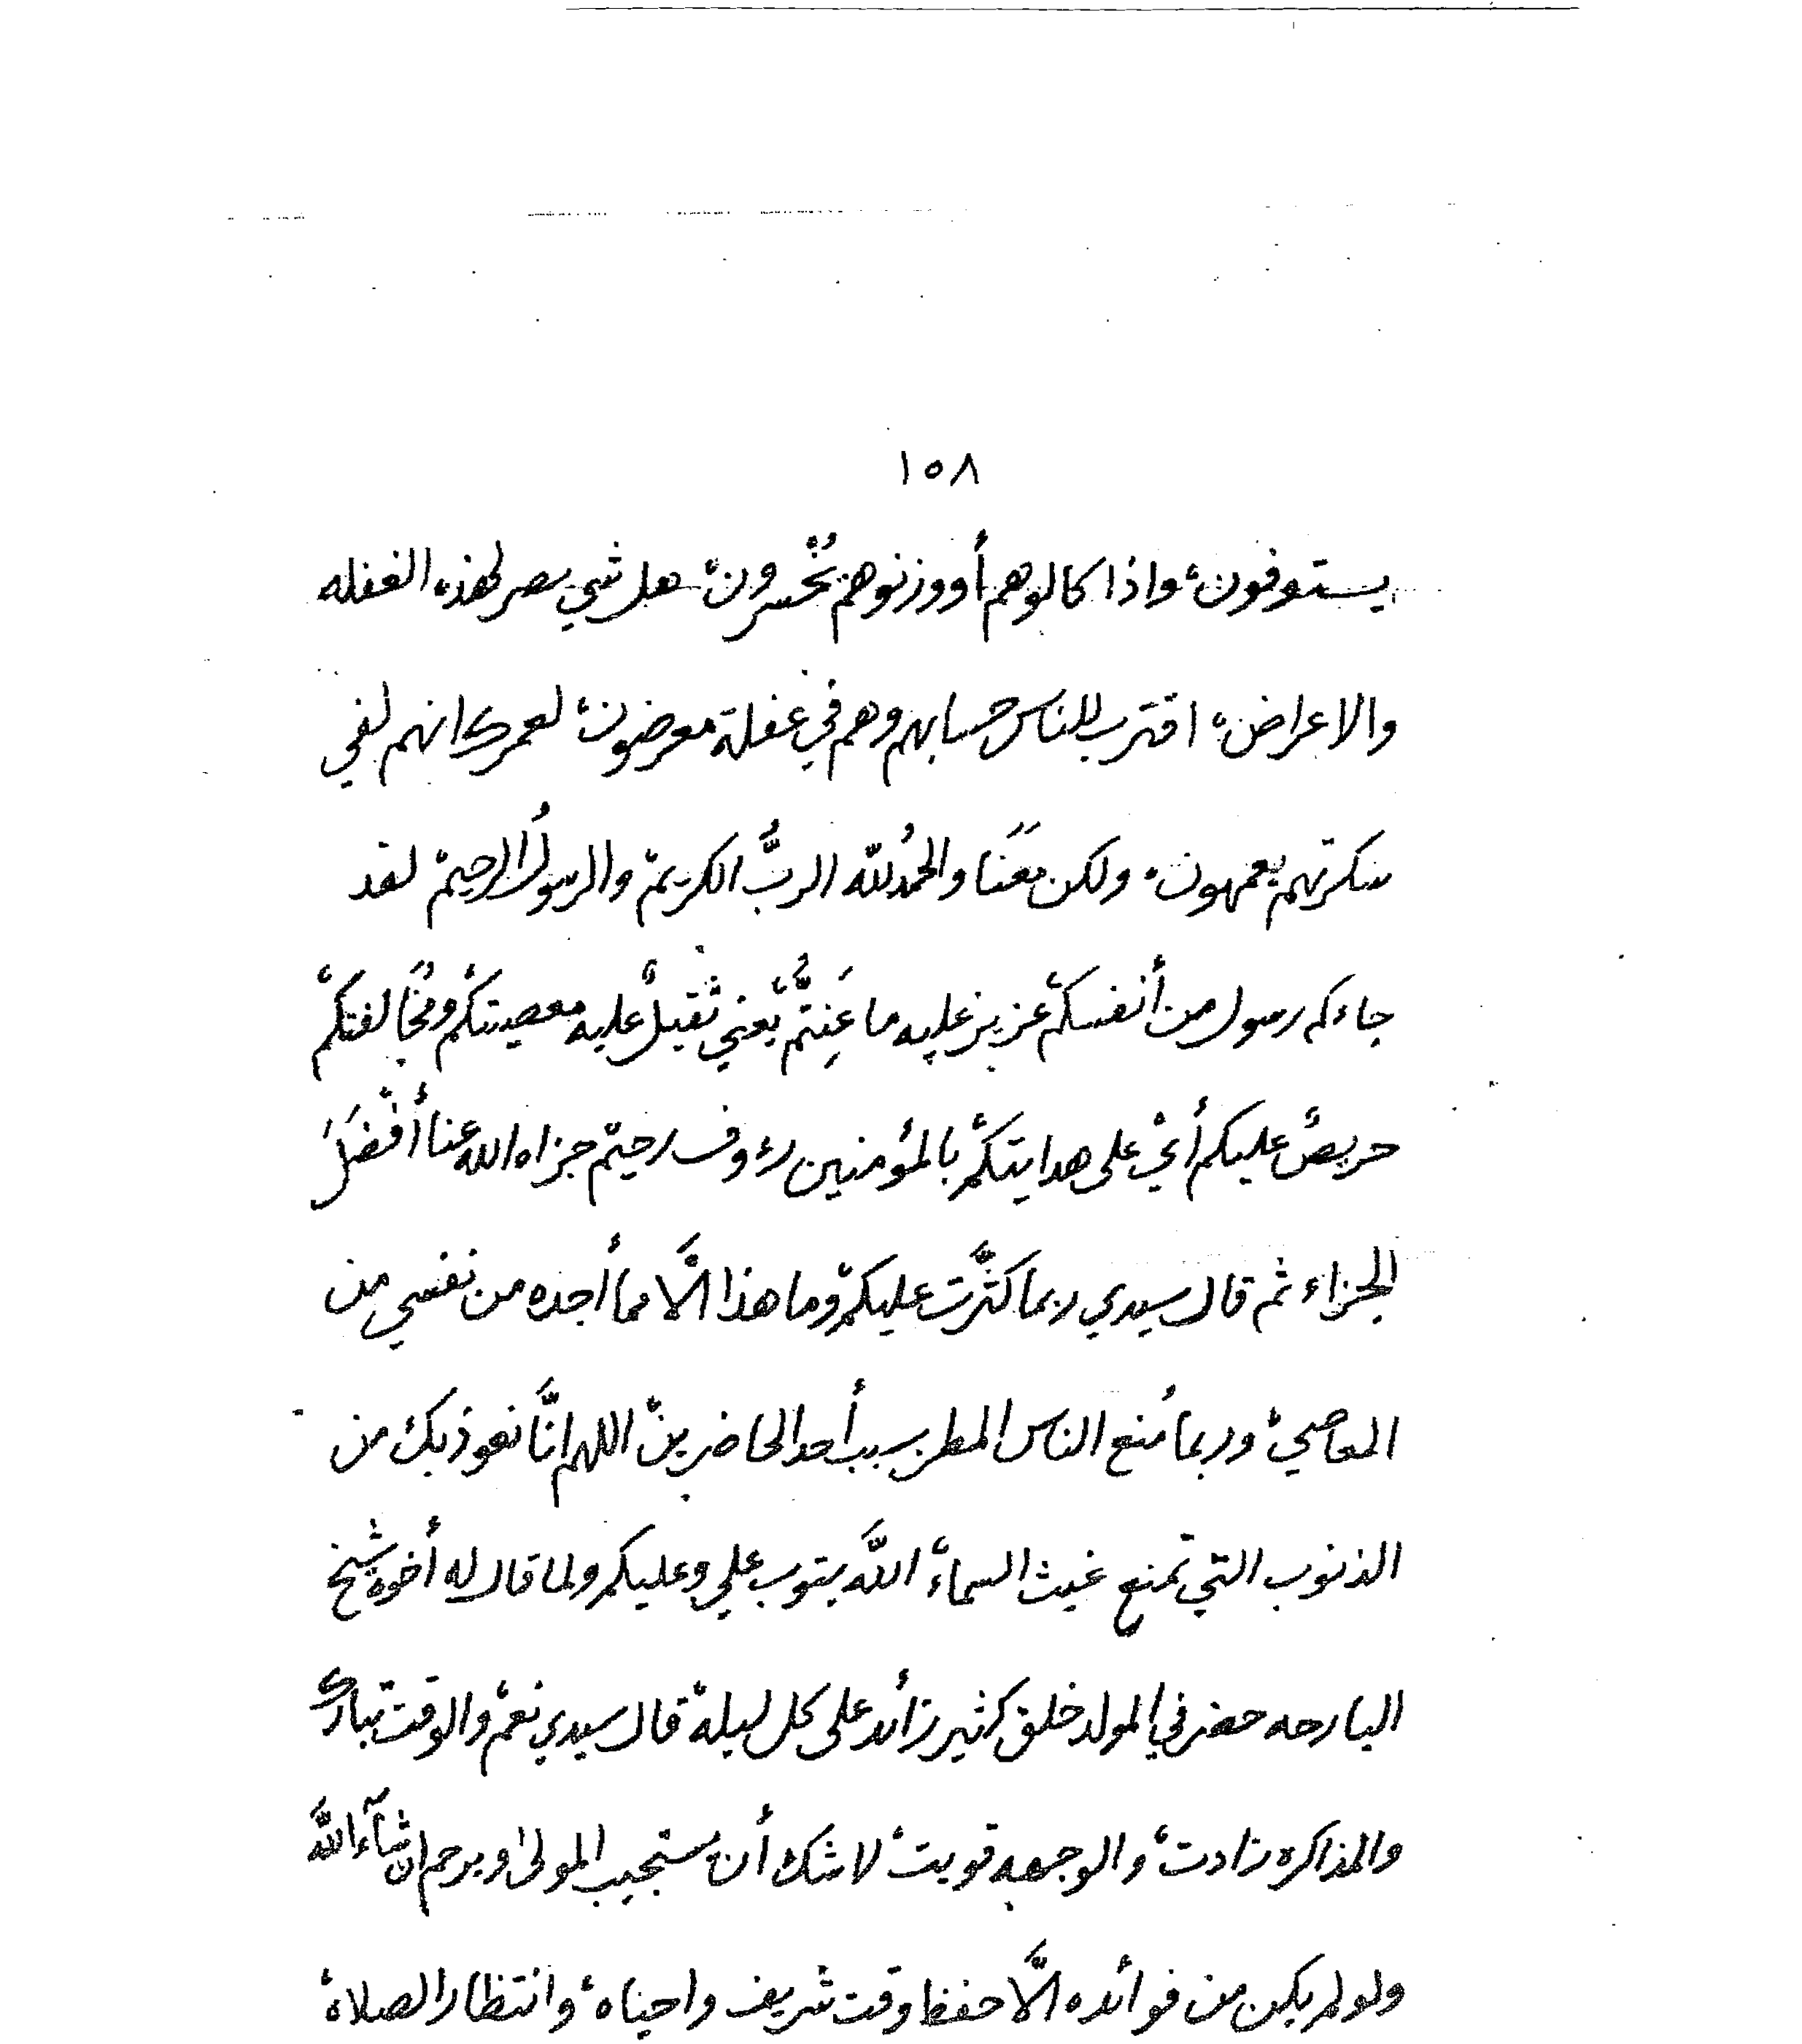 ١٥٨
يستوفون، واذا كالوهم أووزنوهم يُخْسرون، هل شي صبر لهذه الغفله
والاعراض، اقترب للناس حسابهم وهم في غفلة معرضون، لعمرك انهم لفي
سكرتهم يعمهون، ولكن مَعَنا والحمدُ لله الربُّ الكريمْ والرسولُ الرحيمْ لقد
جاءكم رسول من أنفسكمْ عزيز عليه ما عَنِتُّمْ يْعني ثقيلٌ عليه معصيتكمْ ومُخالفتكمْ
حريصٌ عليكم أيْ على هدايتكمْ بالمؤمنين رءوف رحيمْ جزاه الله عنا أفْضَلَ
الجزاء ثم قال سيدي ربما كثَّرت عليكمْ وما هذا الَّا مما أجده من نفسي من
المعاصيْ وربما مُنع الناس المطر بسبب أحد الحاضرينْ اللهم انَّا نعوذ بك من
الذنوب التي تمنع غيث السماءْ اللَّه يتوب علي وعليكم ولما قال له أخوه شيخ
البارحه حضر في المولد خلق كثير زائد على كل ليلةْ قال سيدي نعمْ والوقت تبارك
والمذاكره زادتْ والوجهه قويتْ لا شك أن يستجيب المولىٰ ويرحم ان شآء اللَّه
ولو لم يكن من فوائده الَّا حفظ وقت شريف واحياهْ وانتظار الصلاهْ